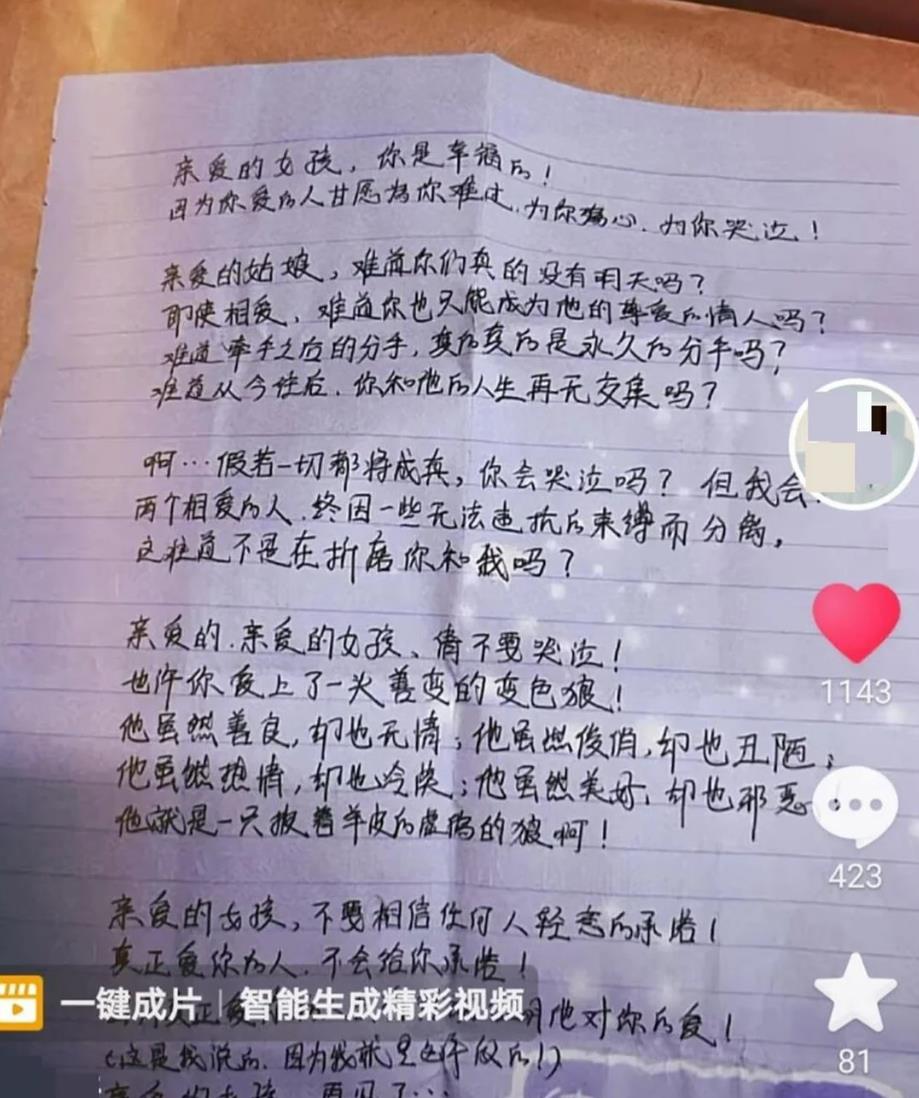 亲爱的女孩，你是幸福的！
因为你爱的人甘愿为你难过.为你痛心.为你哭泣！
亲爱的姑娘，难道你们真的没有明天吗？
即使相爱，难道你也只能成为他的尊爱的情人吗？
难道牵手之后的分手，真的真的是永久的分手吗？
难道从今往后，你和他的人生再无交集吗？
啊…假若一切都将成真，你会哭泣吗？但我会
两个相爱的人.终因一些无法违抗的束缚而分离，
这难道不是在折磨你和我吗？
亲爱的.亲爱的女孩、请不要哭泣！
也许你爱上了一头善变的变色狼！
他虽然善良，却也无情；他虽然俊俏，却也丑陋；
他虽然热情，却也冷淡；他虽然美好，却也邪恶
他就是一只披着羊皮的虚伪的狼啊！
亲爱的女孩，不要相信任何人轻态的承诺！
真正爱你的人.不会给你承诺！
他对你的爱！
(这是我说的.因为我就是这样做的！)
1143
423
81
一键成片｜智能生成精彩视频